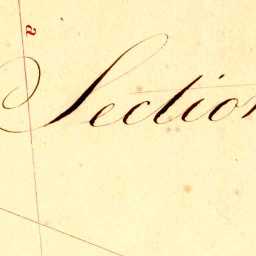 a
Section